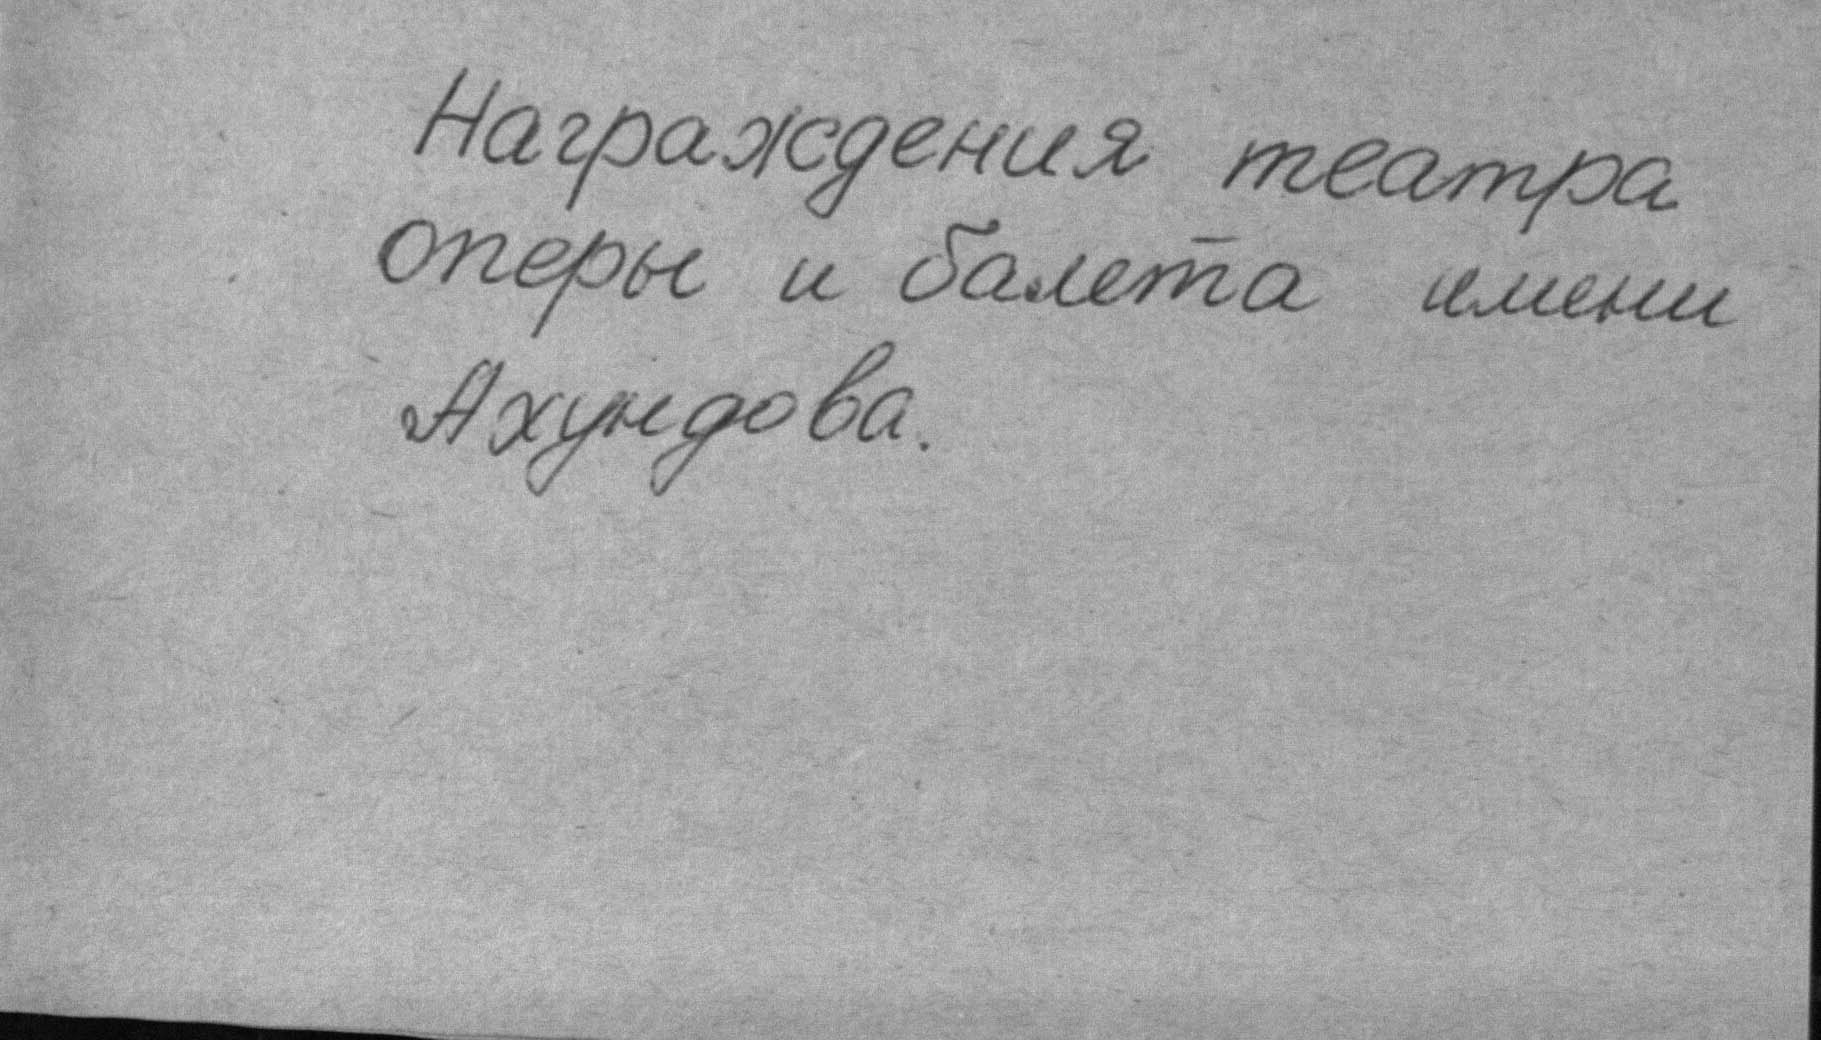 Награждения театра
оперы и балета имени
Ахундова.